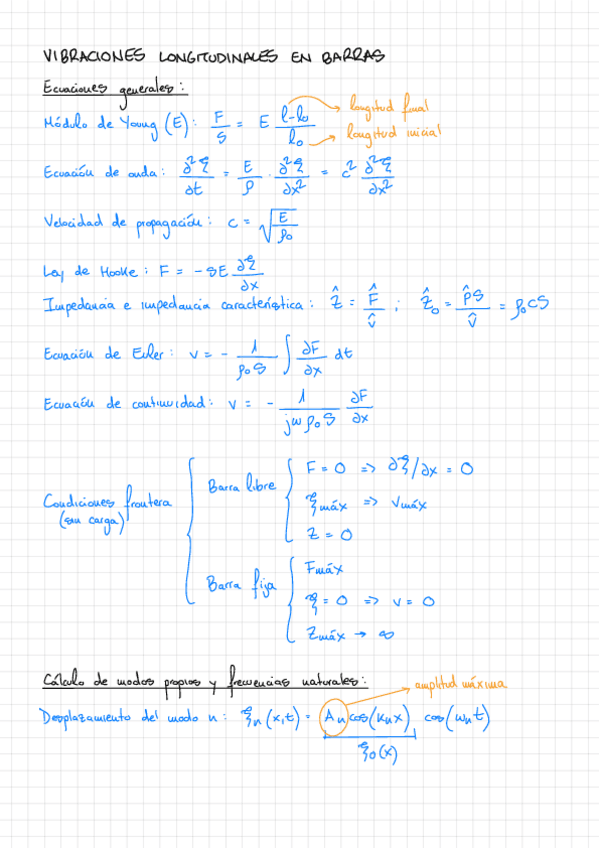 VIBRACIONES LONGITUDINALES EN BARRAS
Ecuaciones generales:
Módulo de Young (E): F/S = E (l-l₀)/l₀
longitud final
longitud inicial
Ecuación de onda: ∂²ξ/∂t = E/ρ · ∂²ξ/∂x² = c² ∂²ξ/∂x²
Velocidad de propagación: c = √(E/ρ₀)
Ley de Hooke: F = - SE ∂ξ/∂x
Impedancia e impedancia característica: Ẑ = F̂/v̂ ; Ẑ₀ = p̂S/v̂ = ρ₀cS
Ecuación de Euler: v = - 1/(ρ₀S) ∫ ∂F/∂x dt
Ecuación de continuidad: v = - 1/(jωρ₀S) ∂F/∂x
Condiciones frontera
(sin carga)
Barra libre
F = 0 => ∂ξ/∂x = 0
ξmáx => vmáx
Z = 0
Barra fija
Fmáx
ξ = 0 => v = 0
Zmáx → ∞
Cálculo de modos propios y frecuencias naturales:
amplitud máxima
Desplazamiento del modo n: ξn(x,t) = An cos(knx) cos(ωnt)
ξ₀(x)